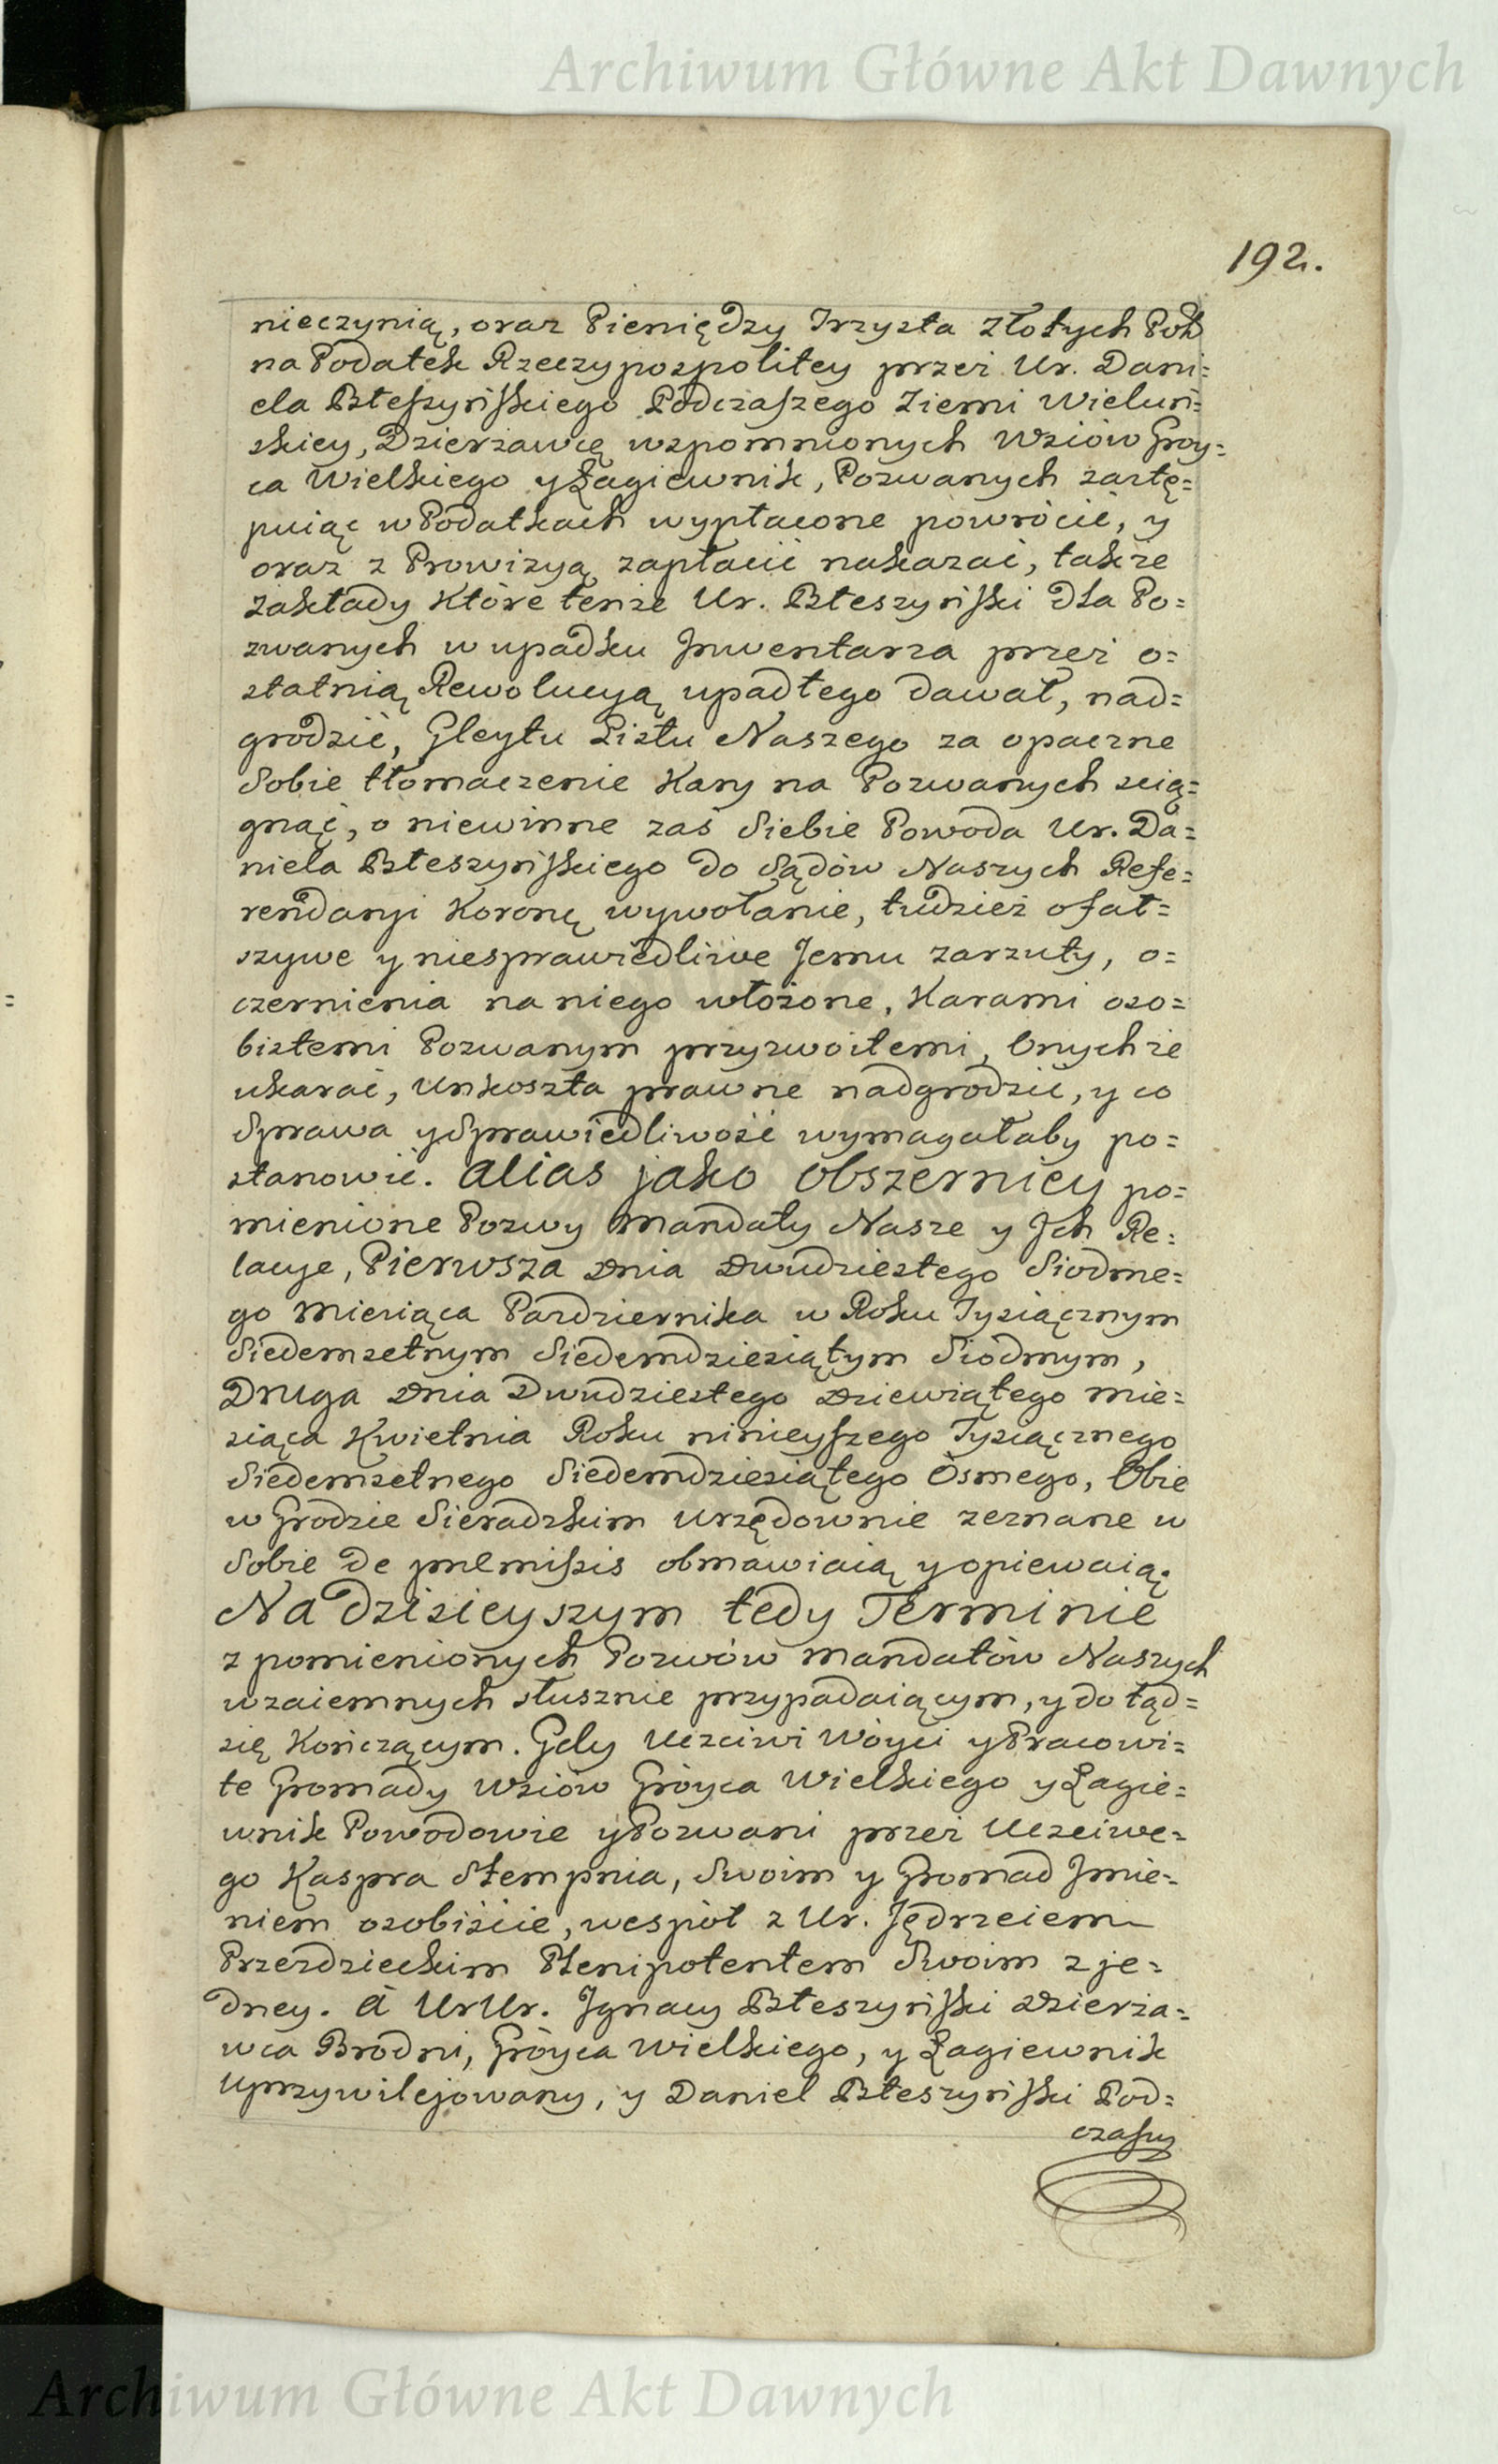 Archiwum Główne Akt Dawnych
192.
nieczynią, oraz Pieniędzy Trzysta Złotych Pols
na Podatek Rzeczypospolitey przez Ur. Dani=
ela Błeszyńskiego Podczaszego Ziemi Wieluń=
skiey, Dzierżawcę wspomnionych Wsiów Groy=
ca Wielkiego y Łagiewnik, Pozwanych zastę=
puiąc w Podatkach wypłacone powrócić, y
oraz z Prowizyą zapłacić nakazać, także
zakłady które tenże Ur. Błeszyński dla Po=
zwanych w upadku Inwentarza przez o=
statnią Rewolucyą upadłego dawał, nad=
grodzić, Gleytu Listu Naszego za opaczne
Sobie tłomaczenie Kary na Pozwanych scią=
gnąć, o niewinne zaś Siebie Powoda Ur. Da=
niela Błeszyńskiego do Sądów Naszych Refe=
rendaryi Koronę wywołanie, tudzież o fał=
szywe y niesprawiedliwe Jemu zarzuty, o=
czernienia na niego włożone, Karami oso=
bistemi Pozwanym przyzwoitemi, Onychże
ukarać, Unkoszta prawne nadgrodzić, y co
Sprawa y Sprawiedliwość wymagałaby po=
stanowić. Alias jako obszerniey po=
mienione Pozwy Mandaty Nasze y Jch Re=
lacye, Pierwsza Dnia Dwudziestego Siodme=
go Miesiąca Pazdziernika w Roku Tysiącznym
Siedemsetnym Siedemdziesiątym Siodmym,
Druga Dnia Dwudziestego Dziewiątego Mie=
siąca Kwietnia Roku ninieyszego Tysiącznego
Siedemsetnego Siedemdziesiątego Osmego, Obie
w Grodzie Sieradzkim Urzędownie zeznane w
Sobie de præmissis obmawiaią y opiewaią.
Na dzisieyszym tedy Terminie
z pomienionych Pozwów Mandatów Naszych
wzaiemnych słusznie przypadaiącym, y do tąd=
się Kończącym. Gdy Uczciwi Woyci y Pracowi=
te Gromady Wsiów Gróyca Wielkiego y Łagie=
wnik Powodowie y Pozwani przez Uczciwe=
go Kaspra Stempnia, Swoim y Gromad Jmie=
niem osobiście, wespół z Ur. Jędrzeiem
Przezdzieckim Plenipotentem Swoim z je=
dney. A UrUr. Jgnacy Błeszyński Dzierża=
wca Brodni, Gróyca Wielkiego, y Łagiewnik
Uprzywilejowany, y Daniel Błeszyński Pod=
czaszy
Archiwum Główne Akt Dawnych